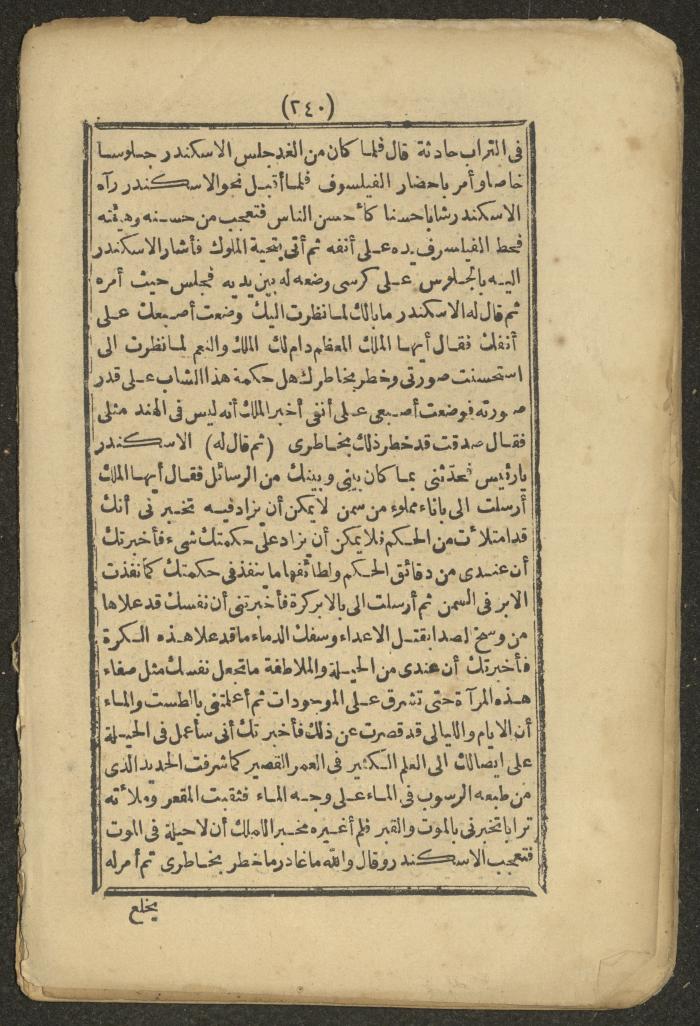 (٢٤٠)
فى التراب حادثة قال فلما كان من الغد جلس الاسكندر جلوسا
خاصا وأمر باحضار الفيلسوف فلما أقبل نحو الاسكندر رآه
الاسكندر شابا حسنا كأحسن الناس فتعجب من حسنه وهيئته
فحط الفيلسوف يده على أنفه ثم أتى بتحية الملوك فأشار الاسكندر
اليه بالجلوس على كرسى وضعه له بين يديه فجلس حيث أمره
ثم قال له الاسكندر ما بالك لما نظرت اليك وضعت أصبعك على
أنفك فقال أيها الملك المعظم دام لك الملك والنعم لما نظرت الى
استحسنت صورتى وخطر بخاطرك هل حكمة هذا الشاب على قدر
صورته فوضعت أصبعى على أنفى أخبر الملك أنه ليس فى الهند مثلى
فقال صدقت قد خطر ذلك بخاطرى (ثم قال له) الاسكندر
يا رئيس فحدثنى بما كان بينى وبينك من الرسائل فقال أيها الملك
أرسلت الى باناء مملوء من سمن لا يمكن أن يزاد فيه تخبرنى أنك
قد امتلأت من الحكم فلا يمكن أن يزاد على حكمتك شىء فأخبرتك
أن عندى من دقائق الحكم ولطائفها ما ينفذ فى حكمتك كما نفذت
الابر فى السمن ثم أرسلت الى بالابر كرة فأخبرتنى أن نفسك قد علاها
من وسخ لصدا بقتل الاعداء وسفك الدماء ما قد علا هذه الكرة
فأخبرتك أن عندى من الحيلة والملاطفة ما تجعل نفسك مثل صفاء
هذه المرآة حتى تشرق على الموجودات ثم أعلمتنى بالطست والماء
أن الايام والليالى قد قصرت عن ذلك فأخبرتك أنى سأعمل فى الحيلة
على ايصالك الى العلم الكثير فى العمر القصير كما شرفت الحديد الذى
من طبعه الرسوب فى الماء على وجه الماء فثقبت المقعر وملأته
ترابا تخبرنى بالموت والقبر فلم أغيره مخبرا للملك أن لا حيلة فى الموت
فتعجب الاسكندر وقال والله ما غادر ما خطر بخاطرى ثم أمر له
يخلع